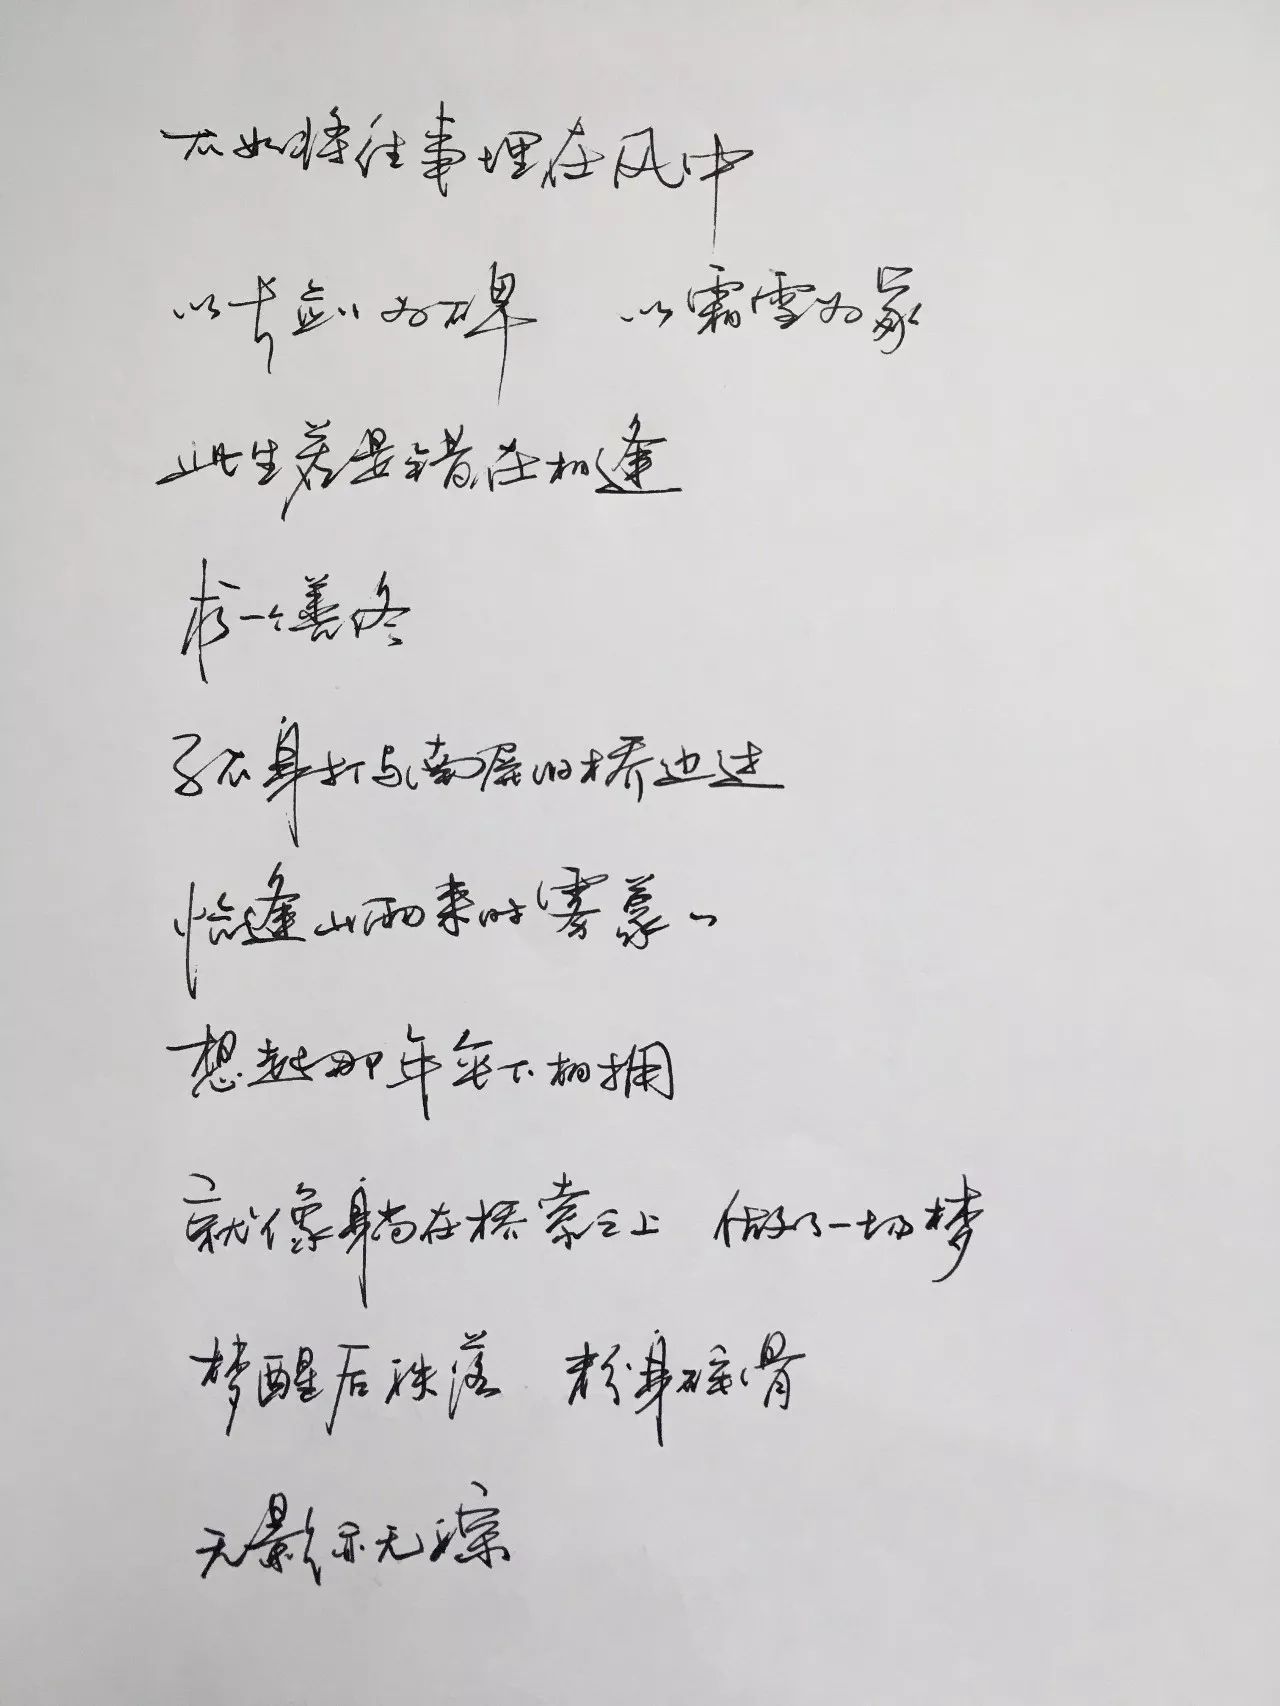 不如将往事埋在风中
以长剑为碑 以霜雪为冢
此生若是错在相逢
求一个善终
孑身打马南屏的桥边过
恰逢山雨来时雾蒙
想起那年伞下相拥
就像躺在桥索之上 做了一场梦
梦醒后跌落 粉身碎骨
无影亦无踪